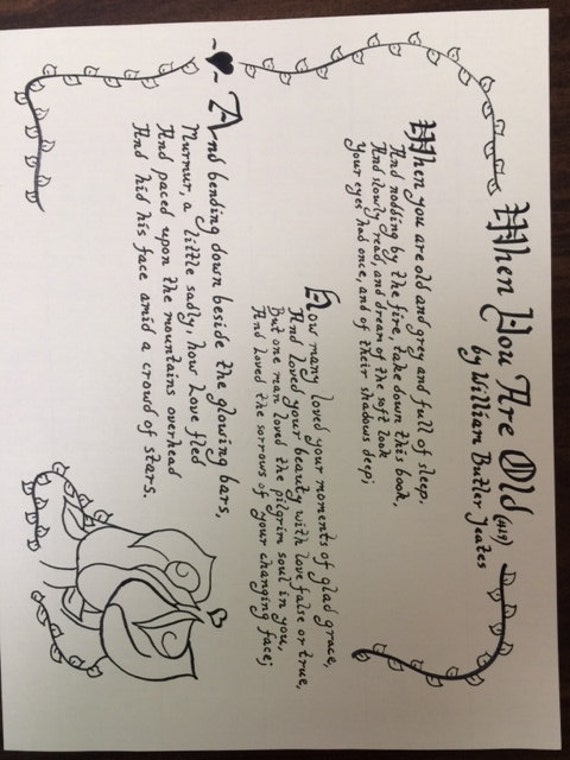 When You Are Old (#19)
by William Butler Yeates
When you are old and grey and full of sleep,
And nodding by the fire, take down this book,
And slowly read, and dream of the soft look
Your eyes had once, and of their shadows deep;
How many loved your moments of glad grace,
And loved your beauty with love false or true,
But one man loved the pilgrim soul in you,
And loved the sorrows of your changing face;
And bending down beside the glowing bars,
Murmur, a little sadly, how Love fled
And paced upon the mountains overhead
And hid his face amid a crowd of stars.